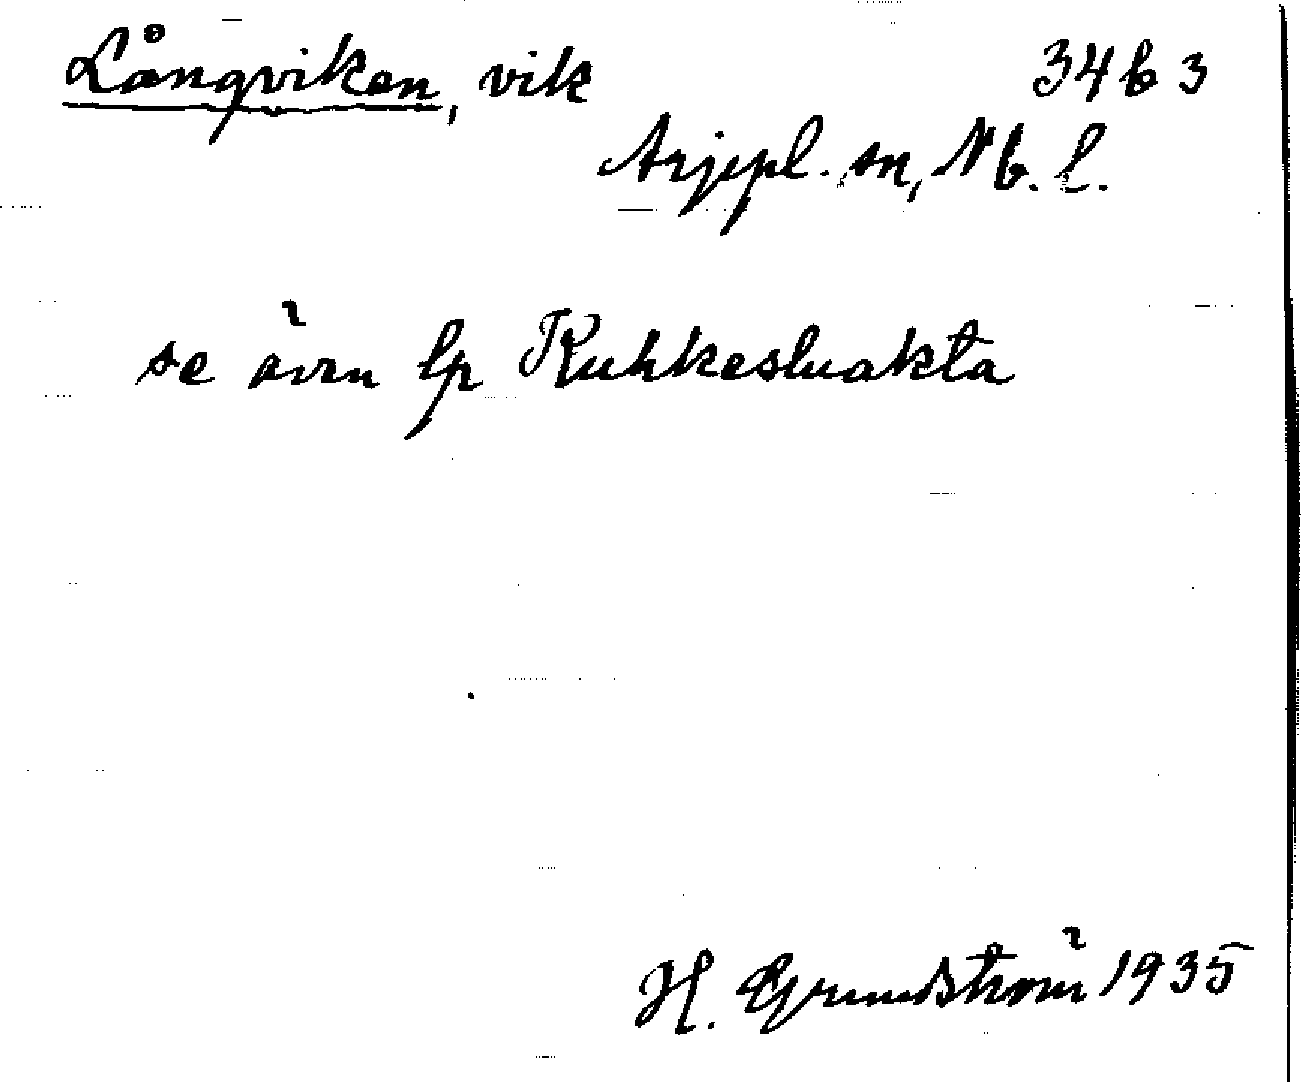 Långviken, vik 34 b 3
Arjepl. sn, Nb. l.
se även lp Kuhkesluakta
H. Grundström 1935